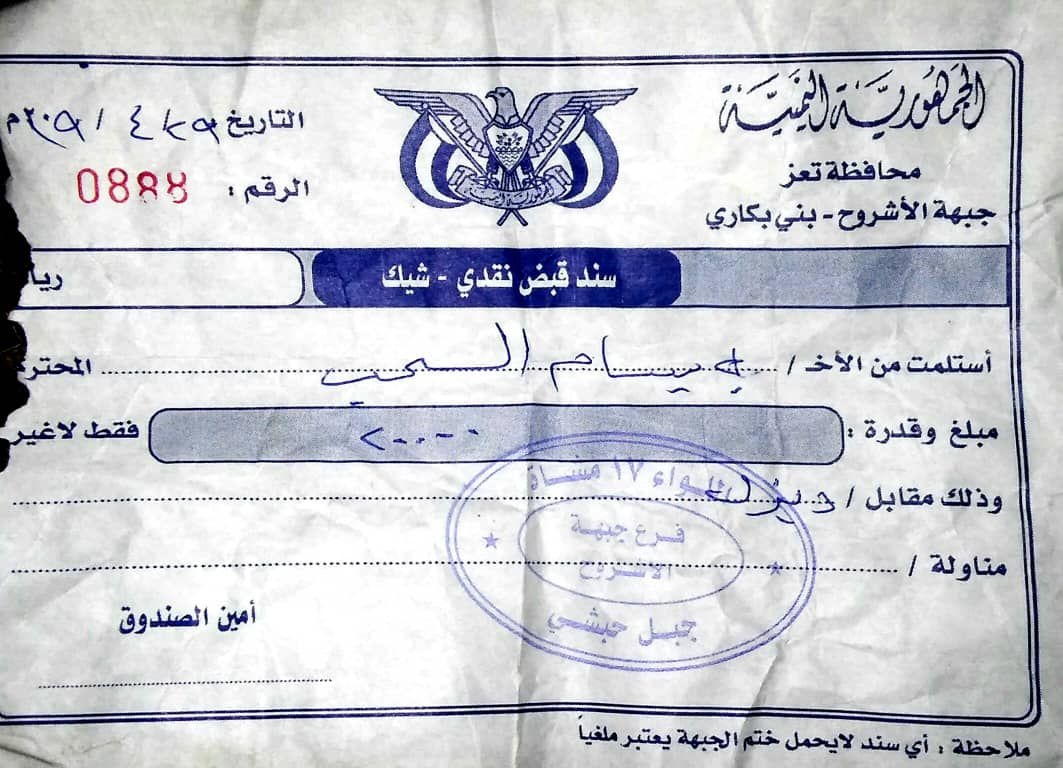 الجمهورية اليمنية
محافظة تعز
جبهة الأشروح - بني بكاري
التاريخ ٢٩ / ٤ /
الرقم : 0888
الجمهورية اليمنية
سند قبض نقدي - شيك
ريا
أستلمت من الأخ / بسام المحتر
مبلغ وقدرة : ٢٠٠٠٠ فقط لاغير
وذلك مقابل / ديزل
مناولة /
أمين الصندوق
اللواء ١٧ مشاة
فرع جبهة
الاشروح
جبل حبشي
ملاحظة : أي سند لايحمل ختم الجبهة يعتبر ملغياً